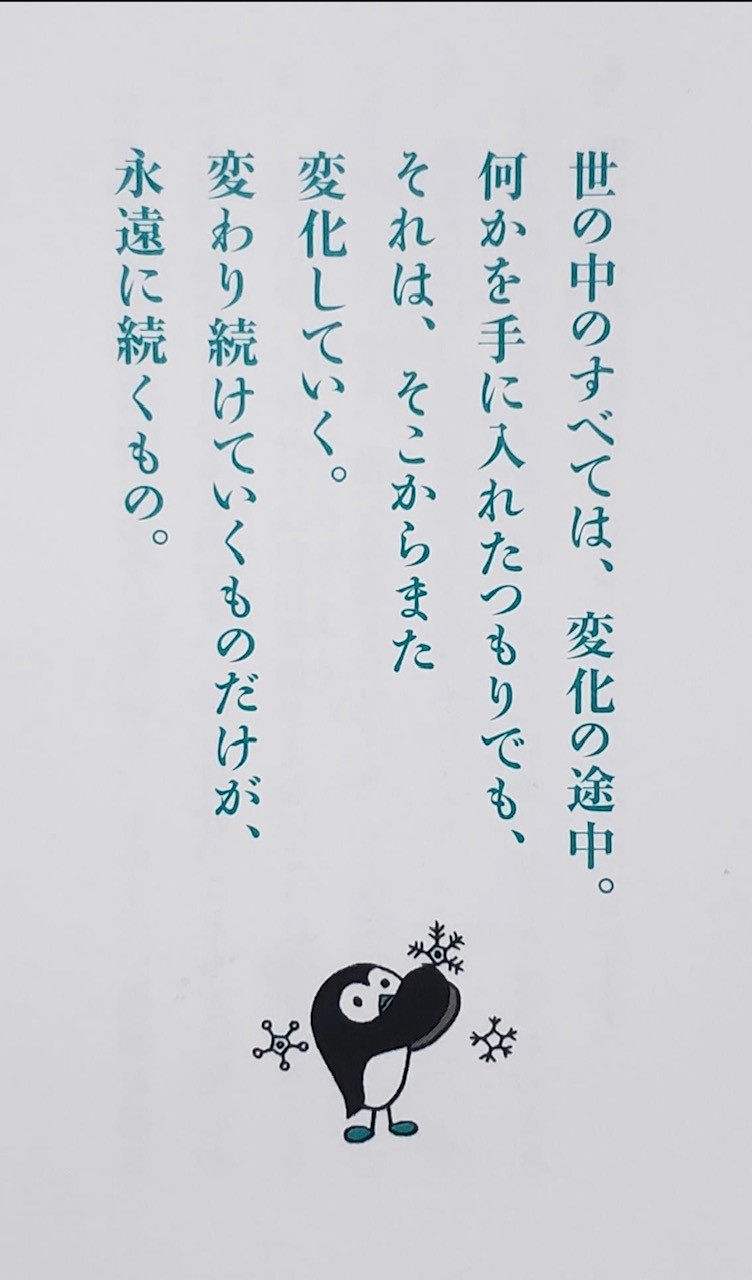 世の中のすべては、変化の途中。
何かを手に入れたつもりでも、
それは、そこからまた
変化していく。
変わり続けていくものだけが、
永遠に続くもの。